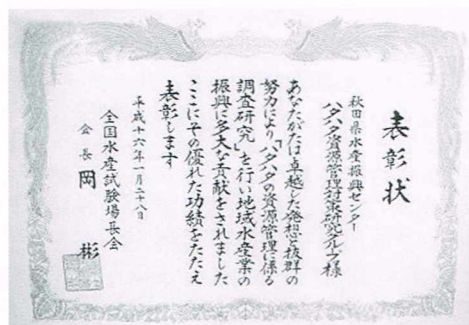 表彰状
秋田県水産振興センター
ハタハタ資源管理対策研究グループ様
あなたがたは卓越した発想と抜群の
努力により「ハタハタの資源管理に係る
調査研究」を行い地域水産業の
振興に多大な貢献をされました
ここにその優れた功績をたたえ
表彰します
平成十六年一月二十八日
全国水産試験場長会
会長 岡 彬